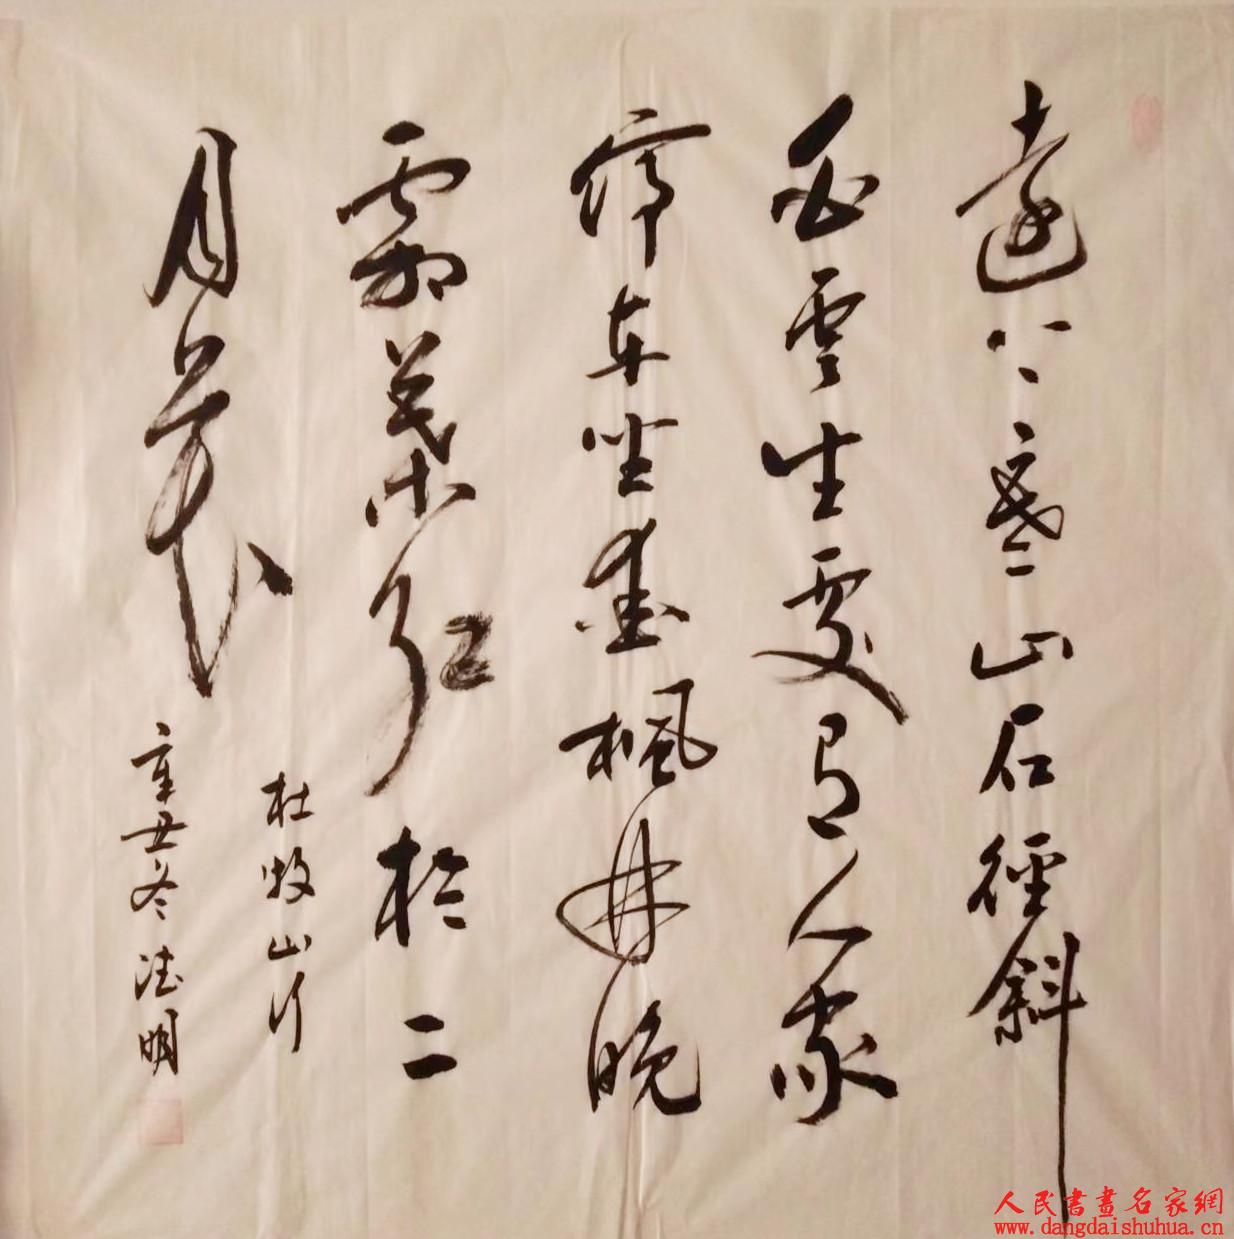 遠上寒山石徑斜
白雲生處有人家
停車坐愛楓林晚
霜葉紅於二
月花
杜牧山行
辛丑冬德明
人民書畫名家網
www.dangdaishuhua.cn